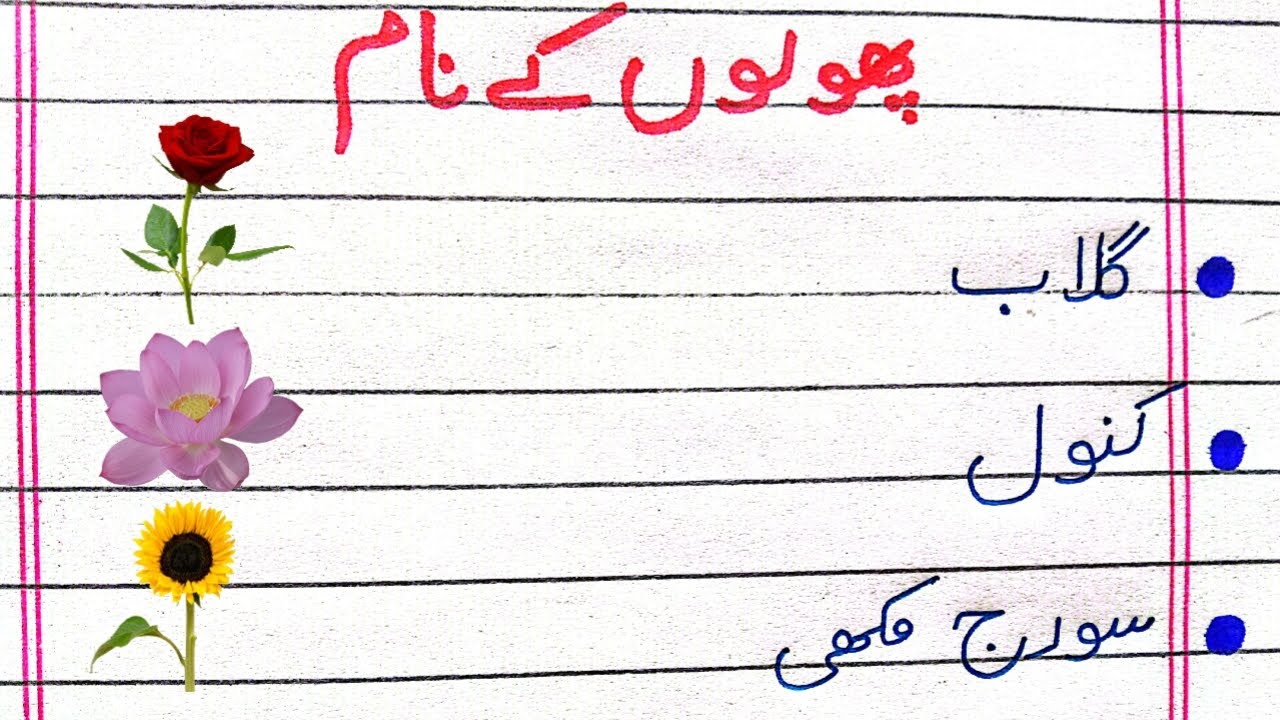 پھولوں کے نام
گلاب
کنول
سورج مکھی